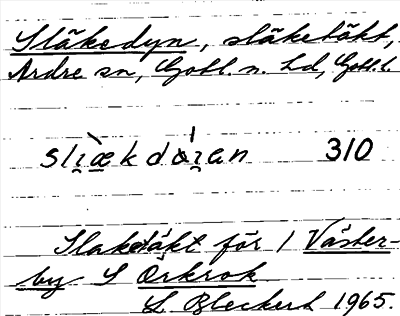 Släkedyn, släketäkt,
Ardre sn, Gotl. n. hd, Gotl. l.
sli̯æ̀k dǽi̯ən 310
Slaketäkt för 1 Väster-
by S Örkrok
L Bleckert 1965.